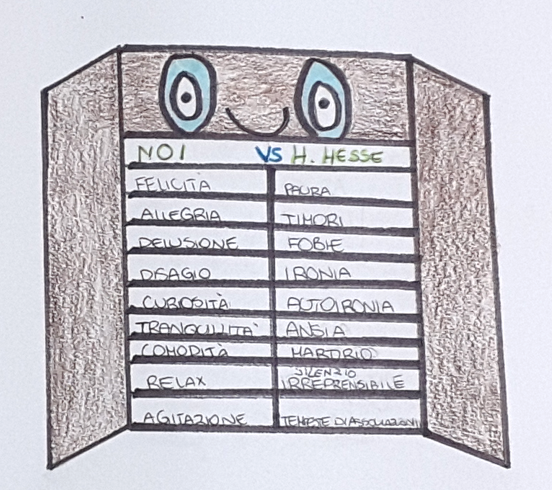 NOI VS H. HESSE
FELICITÀ PAURA
ALLEGRIA TIMORI
DELUSIONE FOBIE
DISAGIO IRONIA
CURIOSITÀ AUTOIRONIA
TRANQUILLITÀ ANSIA
COMODITÀ MARTIRIO
RELAX SILENZIO
IRREPRENSIBILE
AGITAZIONE TEMPESTE DI ASSOCIAZIONI